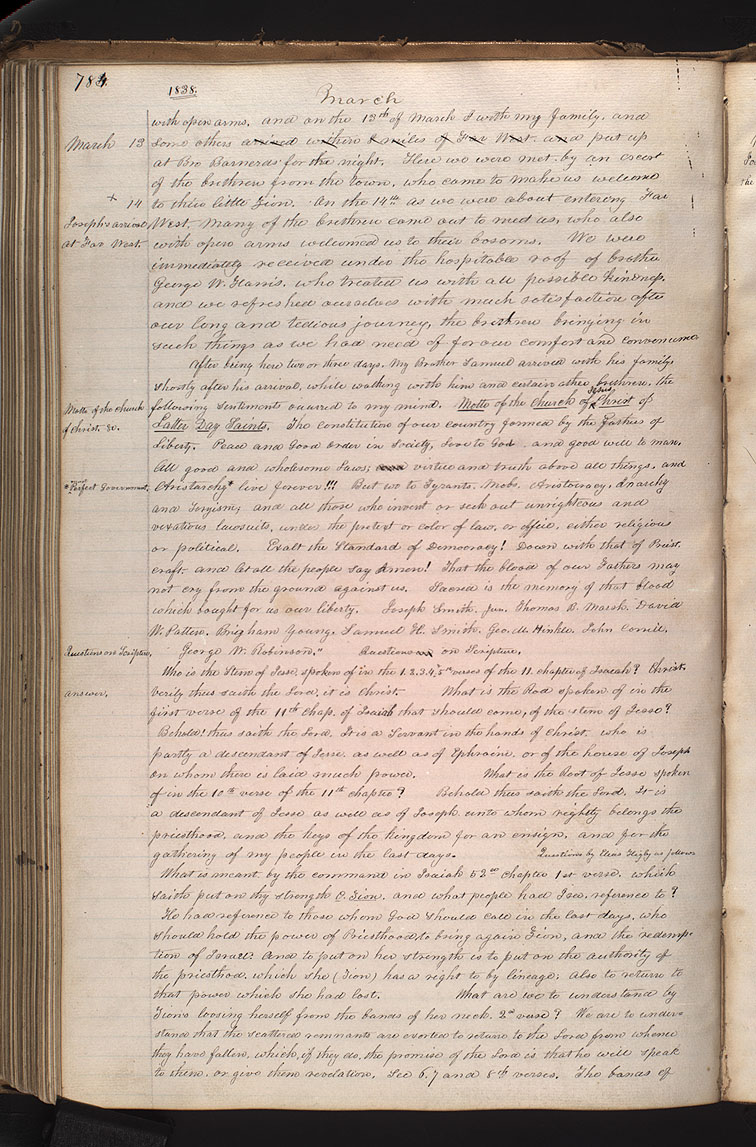 784.
1838.
March
with open arms. and on the 13th of March I with my family. and
March 13 some others arrived within 8 miles of Far West. and put up
at Bro Barnerds for the night. Here we were met by an escort
of the brethren from the town, who came to make us welcome
+ 14 to their little Zion. On the 14th as we were about entering Far
Joseph's arrival West. many of the brethren came out to meet us, who also
at Far West. with open arms welcomed us to their bosoms. We were
immediately received under the hospitable roof of brother
George W. Harris. who treated us with all possible kindness.
and we refreshed ourselves with much satisfaction after
our long and tedious journey, the brethren bringing in
such things as we had need of for our comfort and convenience
After being here two or three days. My Brother Samuel arrived with his family.
shortly after his arrival, while walking with him and certain other brethren. the
Motto of the Church following sentiments occured to my mind. Motto of the Church of Jesus Christ of
of Christ. &c. Latter Day Saints. The constitution of our country formed by the Fathers of
Liberty. Peace and Good order in Society, Love to God. and good will to man.
All good and wholesome Laws; virtue and truth above all things. and
*Perfect Government. Aristarchy* live forever!!! But wo to Tyrants. Mobs. Aristocracy. Anarchy
and Toryism; and all those who invent or seek out unrighteous and
vexatious lawsuits, under the pretext or color of law, or office, either religious
or political. Exalt the Standard of Democracy! Down with that of Priest.
craft. and let all the people say Amen! That the blood of our Fathers may
not cry from the ground against us. Sacred is the memory of that blood
which bought for us our liberty. Joseph Smith. Jun. Thomas B. Marsh. David
W. Patten. Brigham Young. Samuel H. Smith. Geo. M. Hinkle. John Corril.
Questions on Scripture, George W. Robinson." Questions on Scripture.
Who is the Stem of Jesse. spoken of in the 1. 2. 3. 4. 5th verses of the 11. chapter of Isaiah? Christ.
answer. Verily thus saith the Lord. it is Christ. What is the Rod spoken of in the
first verse of the 11th Chap. of Isaiah that should come, of the stem of Jesse?
Behold! thus saith the Lord. It is a Servant in the hands of Christ. who is
partly a descendant of Jesse. as well as of Ephraim. or of the house of Joseph
on whom there is laid much power. What is the Root of Jesse spoken
of in the 10th verse of the 11th chapter? Behold thus saith the Lord. It is
a descendant of Jesse as well as of Joseph unto whom rightly belongs the
priesthood, and the keys of the kingdom for an ensign, and for the
gathering of my people in the last days. Questions by Elias Higby as follows
What is meant by the command in Isaiah 52nd chapter 1st verse. which
saith put on thy strength O. Zion. and what people had Isa. reference to?
He had reference to those whom God should call in the last days, who
should hold the power of Priesthood to bring again Zion, and the redemp-
tion of Israel. And to put on her strength is to put on the authority of
the priesthood. which she (Zion) has a right to by lineage: also to return to
that power which she had lost. What are we to understand by
Zion's loosing herself from the bands of her neck. 2nd verse? We are to under-
stand that the scattered remnants are exorted to return to the Lord from whence
they have fallen, which, if they do, the promise of the Lord is that he will speak
to them. or give them revelation. See 6. 7 and 8th verses. The bands of